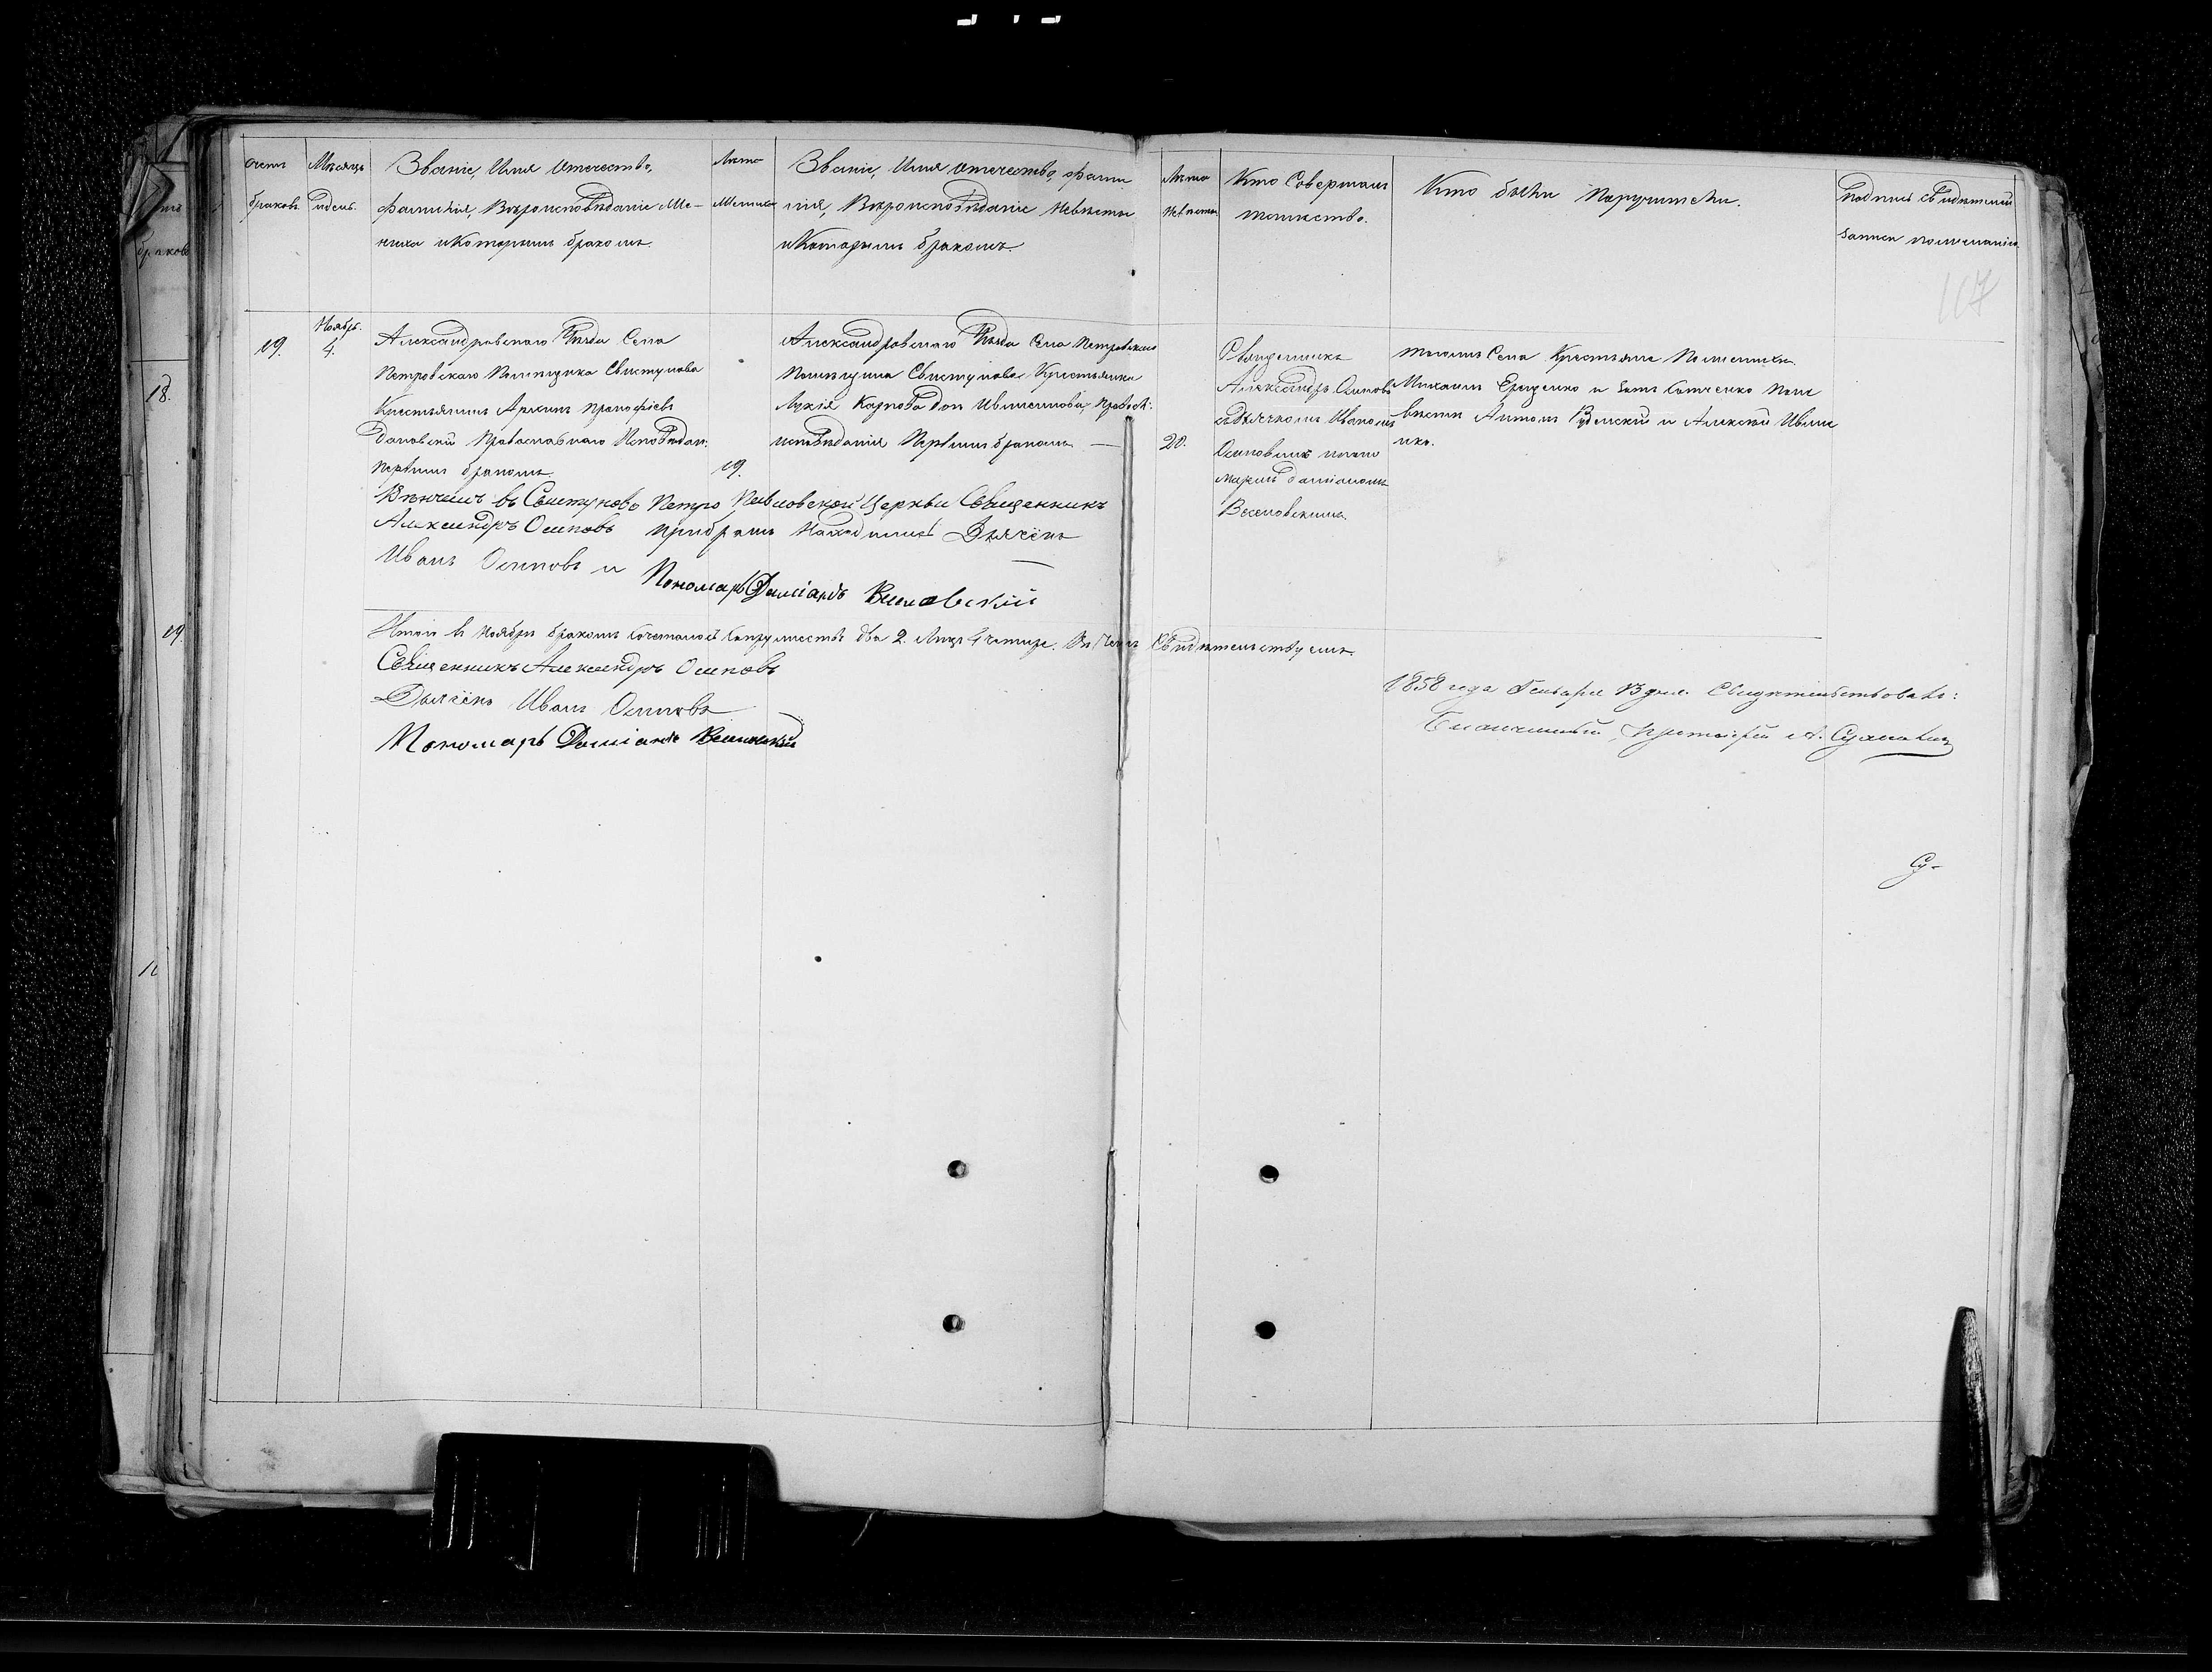 Счетъ браковъ.
Мѣсяцъ и день.
Званіе, Имя Отечество,
фамилія, Вѣроисповѣданіе Же-
ниха и Которымъ бракомъ.
Лѣта Жениха
Званіе, Имя Отечество, фами
лія, Вѣроисповѣданіе Невѣсты
и Которымъ бракомъ.
Лѣта Невѣсты
Кто Совершалъ
таинство.
Кто были Поручители.
Подпись Свидѣтелей
записи по желанію.
117
19.
Ноябрь.
4.
Александровскаго Уѣзда Села
Петровскаго Помѣщика Свистунова
Крестьянинъ
Православнаго Исповѣдан:
первымъ бракомъ
19.
Александровскаго Уѣзда Села Петровскаго
Помѣщика Свистунова Крестьянка
Лукія Карпова Правосл:
исповѣданія Первымъ бракомъ
20.
Священникъ
Александръ Осиповъ
съ Дьячкомъ Иваномъ
Осиповымъ
Даміаномъ
тогожъ Села Крестьяне По женихѣ
Михаилъ и По не
вѣстѣ Антонъ и Алексѣй
Вѣнчалъ въ Свистуново Петро Павловской Церкви Священникъ
Александръ Осиповъ При бракѣ Находились Дьячёкъ
Иванъ Осиповъ и Пономарь Даміанъ
Итого въ Ноябрѣ бракомъ Сочеталось Супружествъ два 2. Лицъ 4 четыре. Свидѣтельствуемъ.
Священникъ Александръ Осиповъ
Дьячёкъ Иванъ Осиповъ
Пономарь Даміанъ
1858 года Генваря 13 дня. Свидѣтельствовалъ:
Благочинный, Протоіерей А.
18.
19.